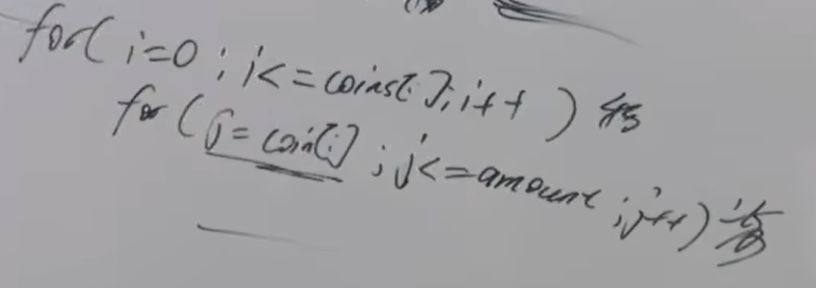 for( i=0 ; i<=coins[i]; i++ ) 物
for ( j=coin[i] ; j<=amount ; j++)